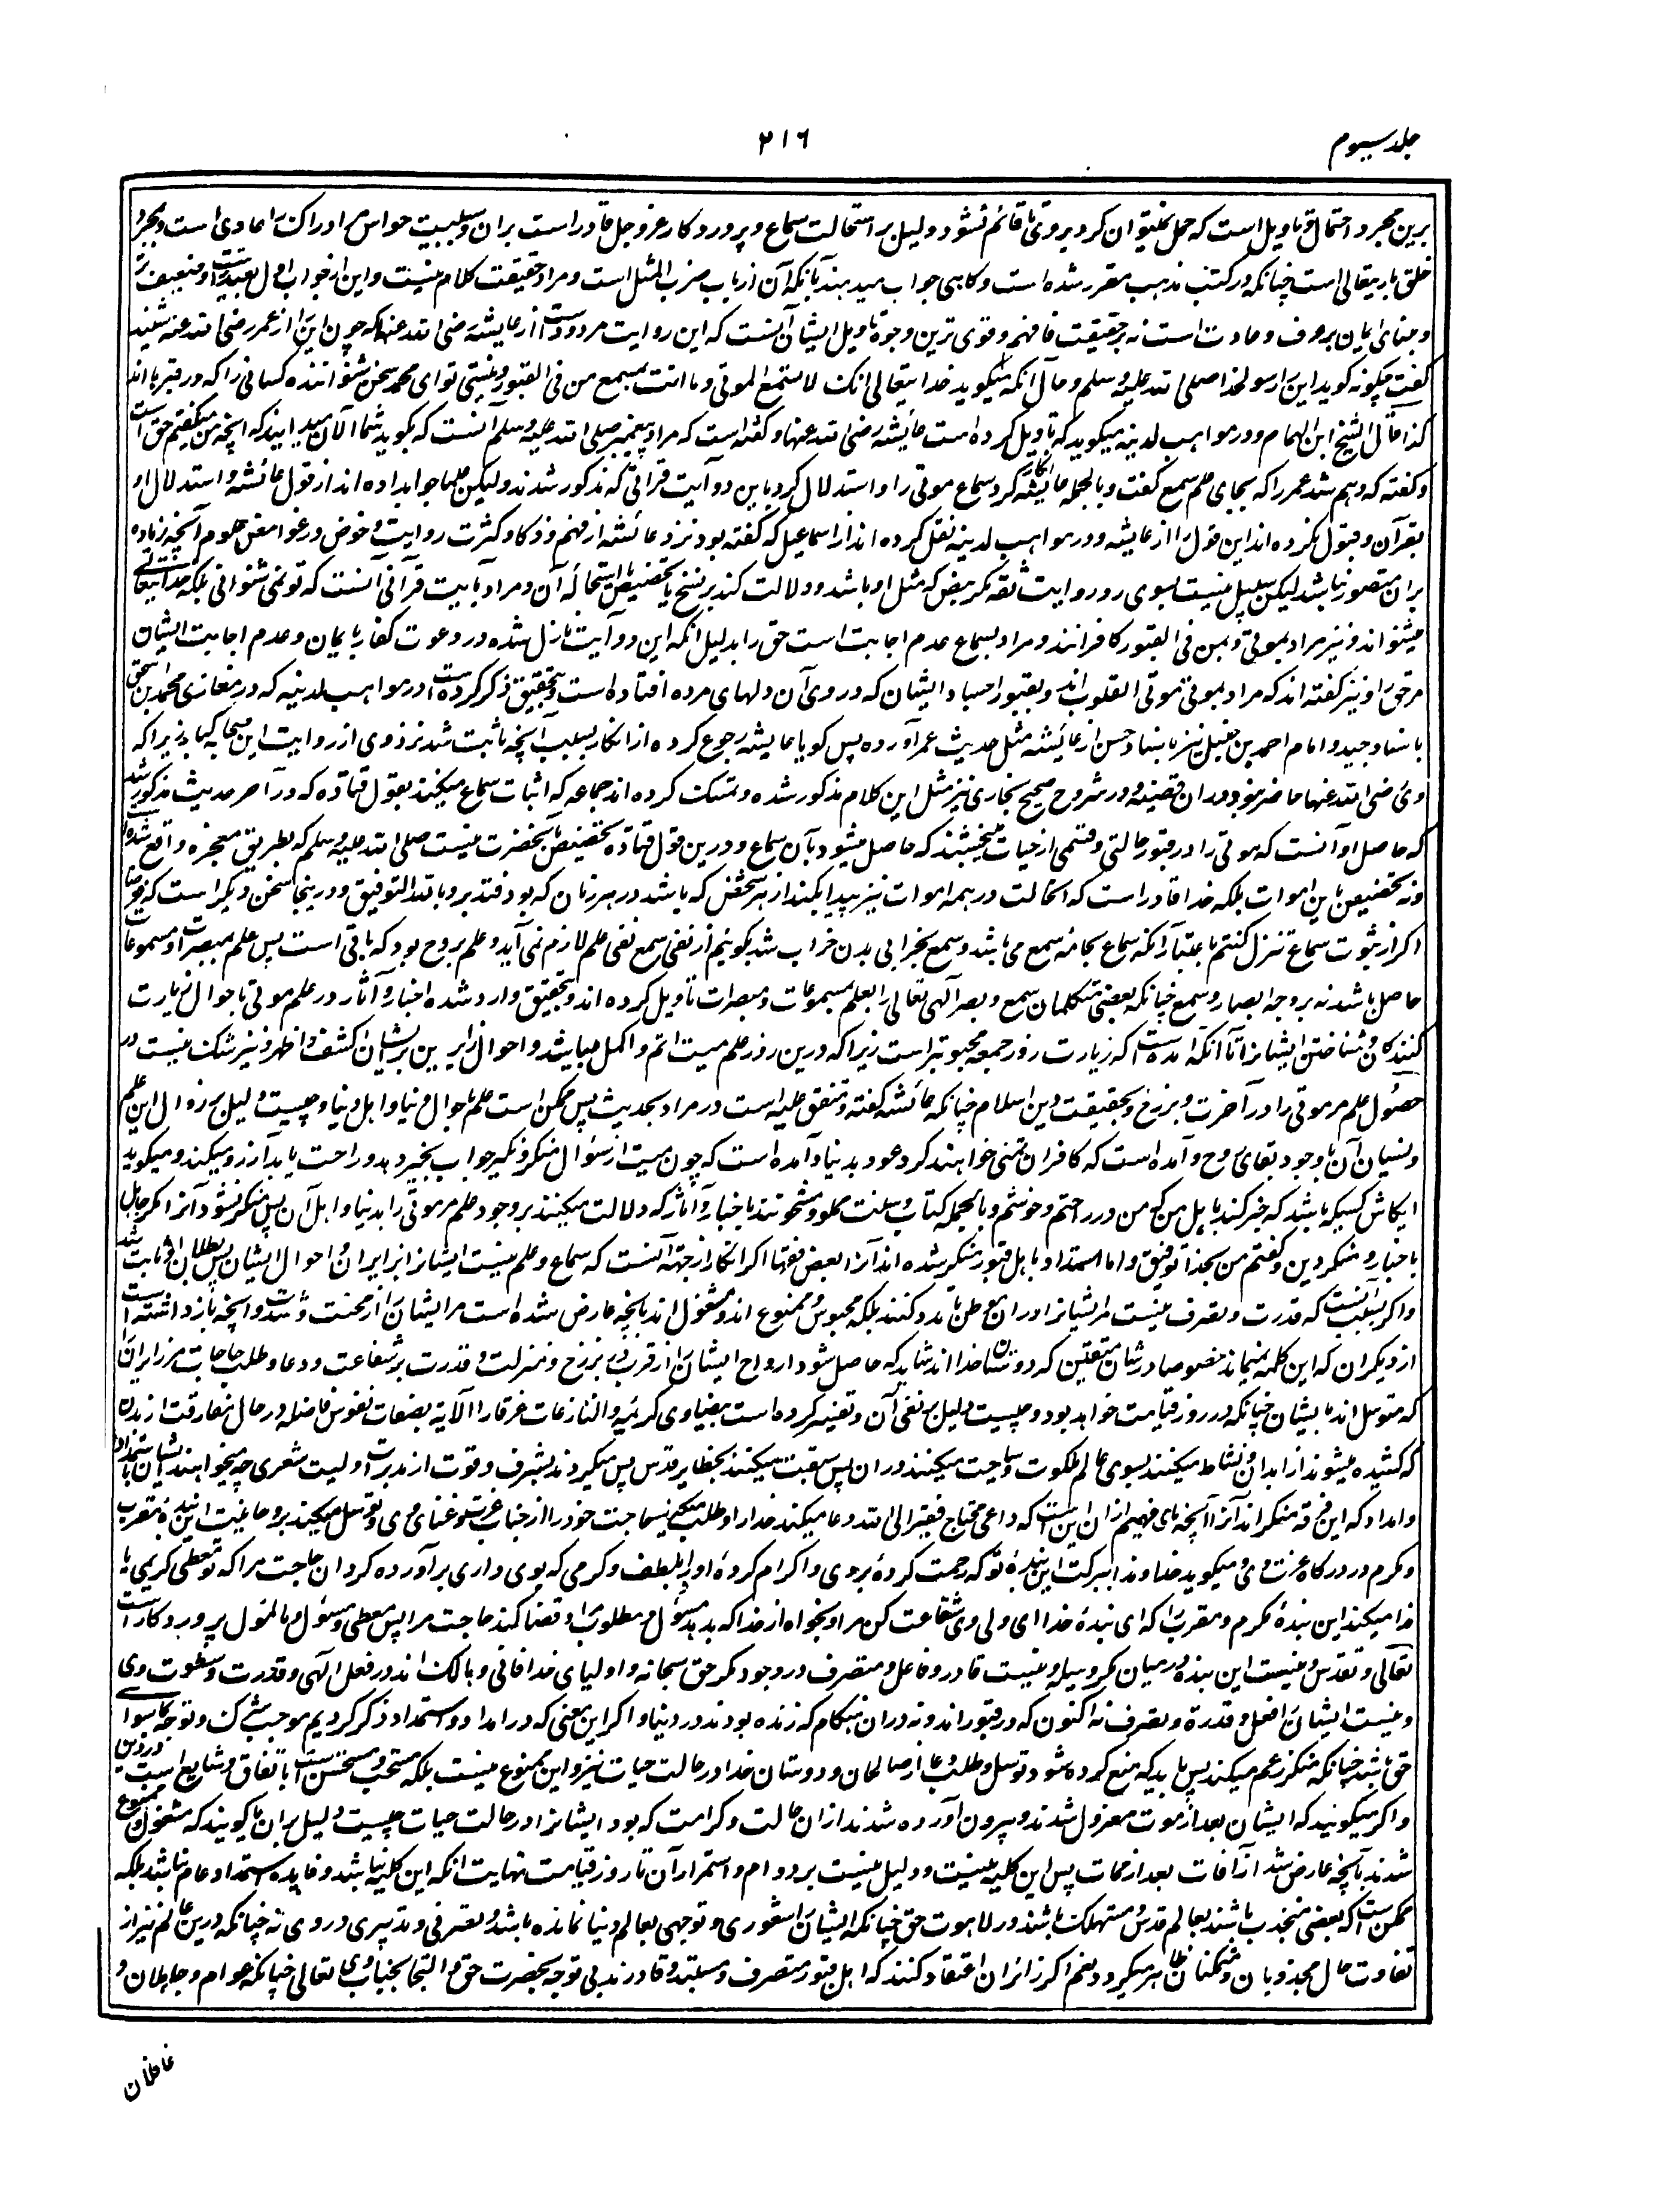 جلد سیوم
۴۱۶
برین مجرد احتمال و تاویل است که حمل نمیتوان کرد بروی تا قائم نشود دلیل بر استحالت سماع و پروردگار عز و جل قادر است بران و سببیت حواس مر ادراک را عادی است و بمجرد
خلق باریتعالی است چنانکه در کتب مذهب مقرر شده است و گاهی جواب میدهند بآنکه آن از باب ضرب المثل است و مراد حقیقت کلام نیست و این از جواب اول بعیدتر است و ضعیف تر
و مبنای ایمان بر عرف و عادت است نه بر حقیقت فافهم و قوی ترین وجوه تاویل ایشان آنست که این روایت مردود است از عایشه رضی الله عنها که چون این را از عمر رضی الله عنه شنید
گفت چگونه گوید این را رسولخدا صلی الله علیه و سلم و حال آنکه میگوید خدایتعالی انک لا تسمع الموتی و ما انت بمسمع من فی القبور و نیستی تو ای محمد سخن شنواننده کسانی را که در قبرها اند
کذا قال الشیخ ابن الهمام و در مواهب لدنیه میگوید که تاویل کرده است عایشه رضی الله عنها و گفته است که مراد پیغمبر صلی الله علیه و سلم آنست که بگوید شما الآن میدانید که آنچه من میگفتم حق است
و گفته که وهم شد عمر را که بجای علم سمع گفت و بالجمله عایشه انکار کرد سماع موتی را و استدلال کرد باین دو آیت قرآنی که مذکور شدند ولیکن علما جوابها داده اند از قول عائشه و استدلال او
بقرآن و قبول نکرده اند این قول را از عایشه و در مواهب لدنیه نقل کرده اند از اسماعیلی که گفته بود نزد عائشه از فهم و ذکا و کثرت روایت و خوض در غوامض علوم آنچه زیاده
بران متصور نباشد لیکن سبیل نیست بسوی رد روایت ثقه مگر بنص که مثل او باشد و دلالت کند بر نسخ یا تخصیص یا استحاله آن و مراد بآیت قرآنی آنست که تو نمی شنوانی بلکه خدایتعالی
میشنواند و نیز مراد بموتی و بمن فی القبور کافرانند و مراد بسماع عدم اجابت است حق را بدلیل آنکه این دو آیت نازل شده در دعوت کفار بایمان و عدم اجابت ایشان
مر حق را و نیز گفته اند که مراد بموتی موتی القلوب اند و بقبور اجساد ایشان که در وی آن دلهای مرده افتاده است و بتحقیق ذکر کرده است در مواهب لدنیه که در مغازی محمد بن اسحق
باسناد جید و امام احمد بن حنبل نیز باسناد حسن از عائشه مثل حدیث عمر آورده پس گویا عایشه رجوع کرده از انکار بسبب آنچه ثابت شد نزد وی از روایت این صحابه کبار زیرا که
وی رضی الله عنها حاضر نبود دران قضیه و در شروح صحیح بخاری نیز مثل این کلام مذکور شده و تمسک کرده اند جماعه که اثبات سماع میکنند بقول قتاده که در آخر حدیث مذکور شد
که حاصل او آنست که موتی را در قبور حالتی و قسمی از حیات میبخشند که حاصل میشود بآن سماع و درین قول قتاده تخصیص بآنحضرت نیست صلی الله علیه و سلم که بطریق معجزه واقع شده
و نه تخصیص باین اموات بلکه خدا قادر است که آنحالت در همه اموات نیز پیدا بکند از هر شخص که باشد در هر زمان که بود فتدبر و بالله التوفیق و درینجا سخن دیگر است که فرضا
اگر از ثبوت سماع تنزل کنیم باعتبار آنکه سماع بحاسه سمع می باشد و سمع بخرابی بدن خراب شد بگوئیم از نفی سمع نفی علم لازم نمی آید و علم بروح بود که باقی است پس علم بمبصرات و مسموعات
حاصل باشد نه بر وجه ابصار و سمع چنانکه بعضی متکلمان سمع و بصر الهی تعالی را بعلم بمسموعات و مبصرات تاویل کرده اند و بتحقیق وارد شده اخبار و آثار در علم موتی باحوال زیارت
کنندگان و شناختن ایشانرا تا آنکه آمده است که زیارت روز جمعه محبوبتر است زیرا که درین روز علم میت اتم و اکمل میباشد و احوال زایرین بر ایشان اکشف و اظهر و نیز شک نیست در
حصول علم مر موتی را در آخرت و برزخ و بحقیقت دین اسلام چنانکه عائشه گفته و متفق علیه است در مراد بحدیث پس ممکن است علم باحوال دنیا و اهل دنیا و چیست دلیل بر زوال این علم
و نسیان آن با وجود بقای روح و آمده است که کافران تمنی خواهند کرد عود بدنیا و آمده است که چون میت از سؤال منکر و نکیر جواب بخیر دهد و راحت یابد آرزو میکند و میگوید
ایکاش کسیکه باشد که خبر کند باهل من که من در راحتم و خوشم و بالجمله کتاب و سنت مملو و مشحونند باخبار و آثار که دلالت میکنند بر وجود علم مر موتی را بدنیا و اهل آن پس منکر نشود آنرا مگر جاهل
باخبار و منکر دین و گفتم من بخدا توفیق و اما استمداد باهل قبور منکر شده اند آنرا بعض فقها اگر انکار از جهت آنست که سماع و علم نیست ایشانرا بزایران و احوال ایشان پس بطلان او ثابت شد
و اگر بسبب آنست که قدرت و تصرف نیست مر ایشانرا دران موطن تا مدد کنند بلکه محبوس و ممنوع اند و مشغول اند بآنچه عارض شده است مر ایشان را از محنت و شدت و آنچه بازداشته است
از دیگران که این کلیه نیماند خصوصا در شان متقین که دوستان خدا اند شاید که حاصل شود ارواح ایشان را از قرب در برزخ و منزلت و قدرت بر شفاعت و دعا و طلب حاجات مر زایران را
که متوسل اند بایشان چنانکه در روز قیامت خواهد بود و چیست دلیل بر نفی آن و تفسیر کرده است بیضاوی کریمه والنازعات غرقا را الآیه بصفات نفوس فاضله در حال مفارقت از بدن
که کشیده میشوند از ابدان و نشاط میکنند بسوی عالم ملکوت و سیاحت میکنند دران پس سبقت میکنند بحظایر قدس پس میگردند بشرف و قوت از مدبرات و لیت شعری چه میخواهند ایشان باستمداد
و امداد که این فرقه منکر اند آنرا آنچه مای فهمیم ازان اینست که داعی محتاج فقیر الی الله دعا میکند خدا را و طلب میکند حاجت خود را از جناب عزت و غنای وی و توسل میکند بروحانیت این بنده مقرب
و مکرم در درگاه عزت وی و میگوید خداوندا ببرکت این بنده تو که رحمت کرده بر وی و اکرام کرده او را بلطف و کرمی که بوی داری برآورده گردان حاجت مرا که تو معطی کریمی یا
ندا میکند این بنده مکرم و مقرب را که ای بنده خدا و ای ولی وی شفاعت کن مرا و بخواه از خدا که بدهد مسئول و مطلوب مرا و قضا کند حاجت مرا پس معطی و مسئول و مامول پروردگار است
تعالی و تقدس و نیست این بنده در میان مگر وسیله و نیست قادر و فاعل و متصرف در وجود مگر حق سبحانه و اولیای خدا فانی و هالک اند در فعل الهی و قدرت و سطوت وی
و نیست ایشان را فعل و قدرة و تصرف نه اکنون که در قبور اند و نه دران هنگام که زنده بودند در دنیا و اگر این معنی که در امداد و استمداد ذکر کردیم موجب شرک و توجه بماسوای
حق باشد چنانکه منکر زعم میکند پس باید که منع کرده شود توسل و طلب دعا از صالحان و دوستان خدا در حالت حیات نیز و این ممنوع نیست بلکه مستحب و مستحسن است باتفاق و شایع است در دین
و اگر میگویند که ایشان بعد از موت معزول شدند و بیرون آورده شدند ازان حالت و کرامت که بود ایشانرا در حالت حیات چیست دلیل بران یا گویند که مشغول و ممنوع
شدند بآنچه عارض شد از آفات بعد از ممات پس این کلیه نیست و دلیل نیست بر دوام و استمرار آن تا روز قیامت نهایت آنکه این کلیه نباشد و فایده استمداد عام نباشد بلکه
ممکن است که بعضی منجذب باشند بعالم قدس و مستهلک باشند در لاهوت حق چنانکه ایشان را شعوری و توجهی بعالم دنیا نمانده باشد و تصرفی و تدبیری در وی نه چنانکه درین عالم نیز از
تفاوت حال مجذوبان و متمکنان ظاهر میگردد نعم اگر زائران اعتقاد کنند که اهل قبور متصرف و مستبد و قادرند بی توجه بحضرت حق و التجا بجناب وی تعالی چنانکه عوام و جاهلان و
غافلان